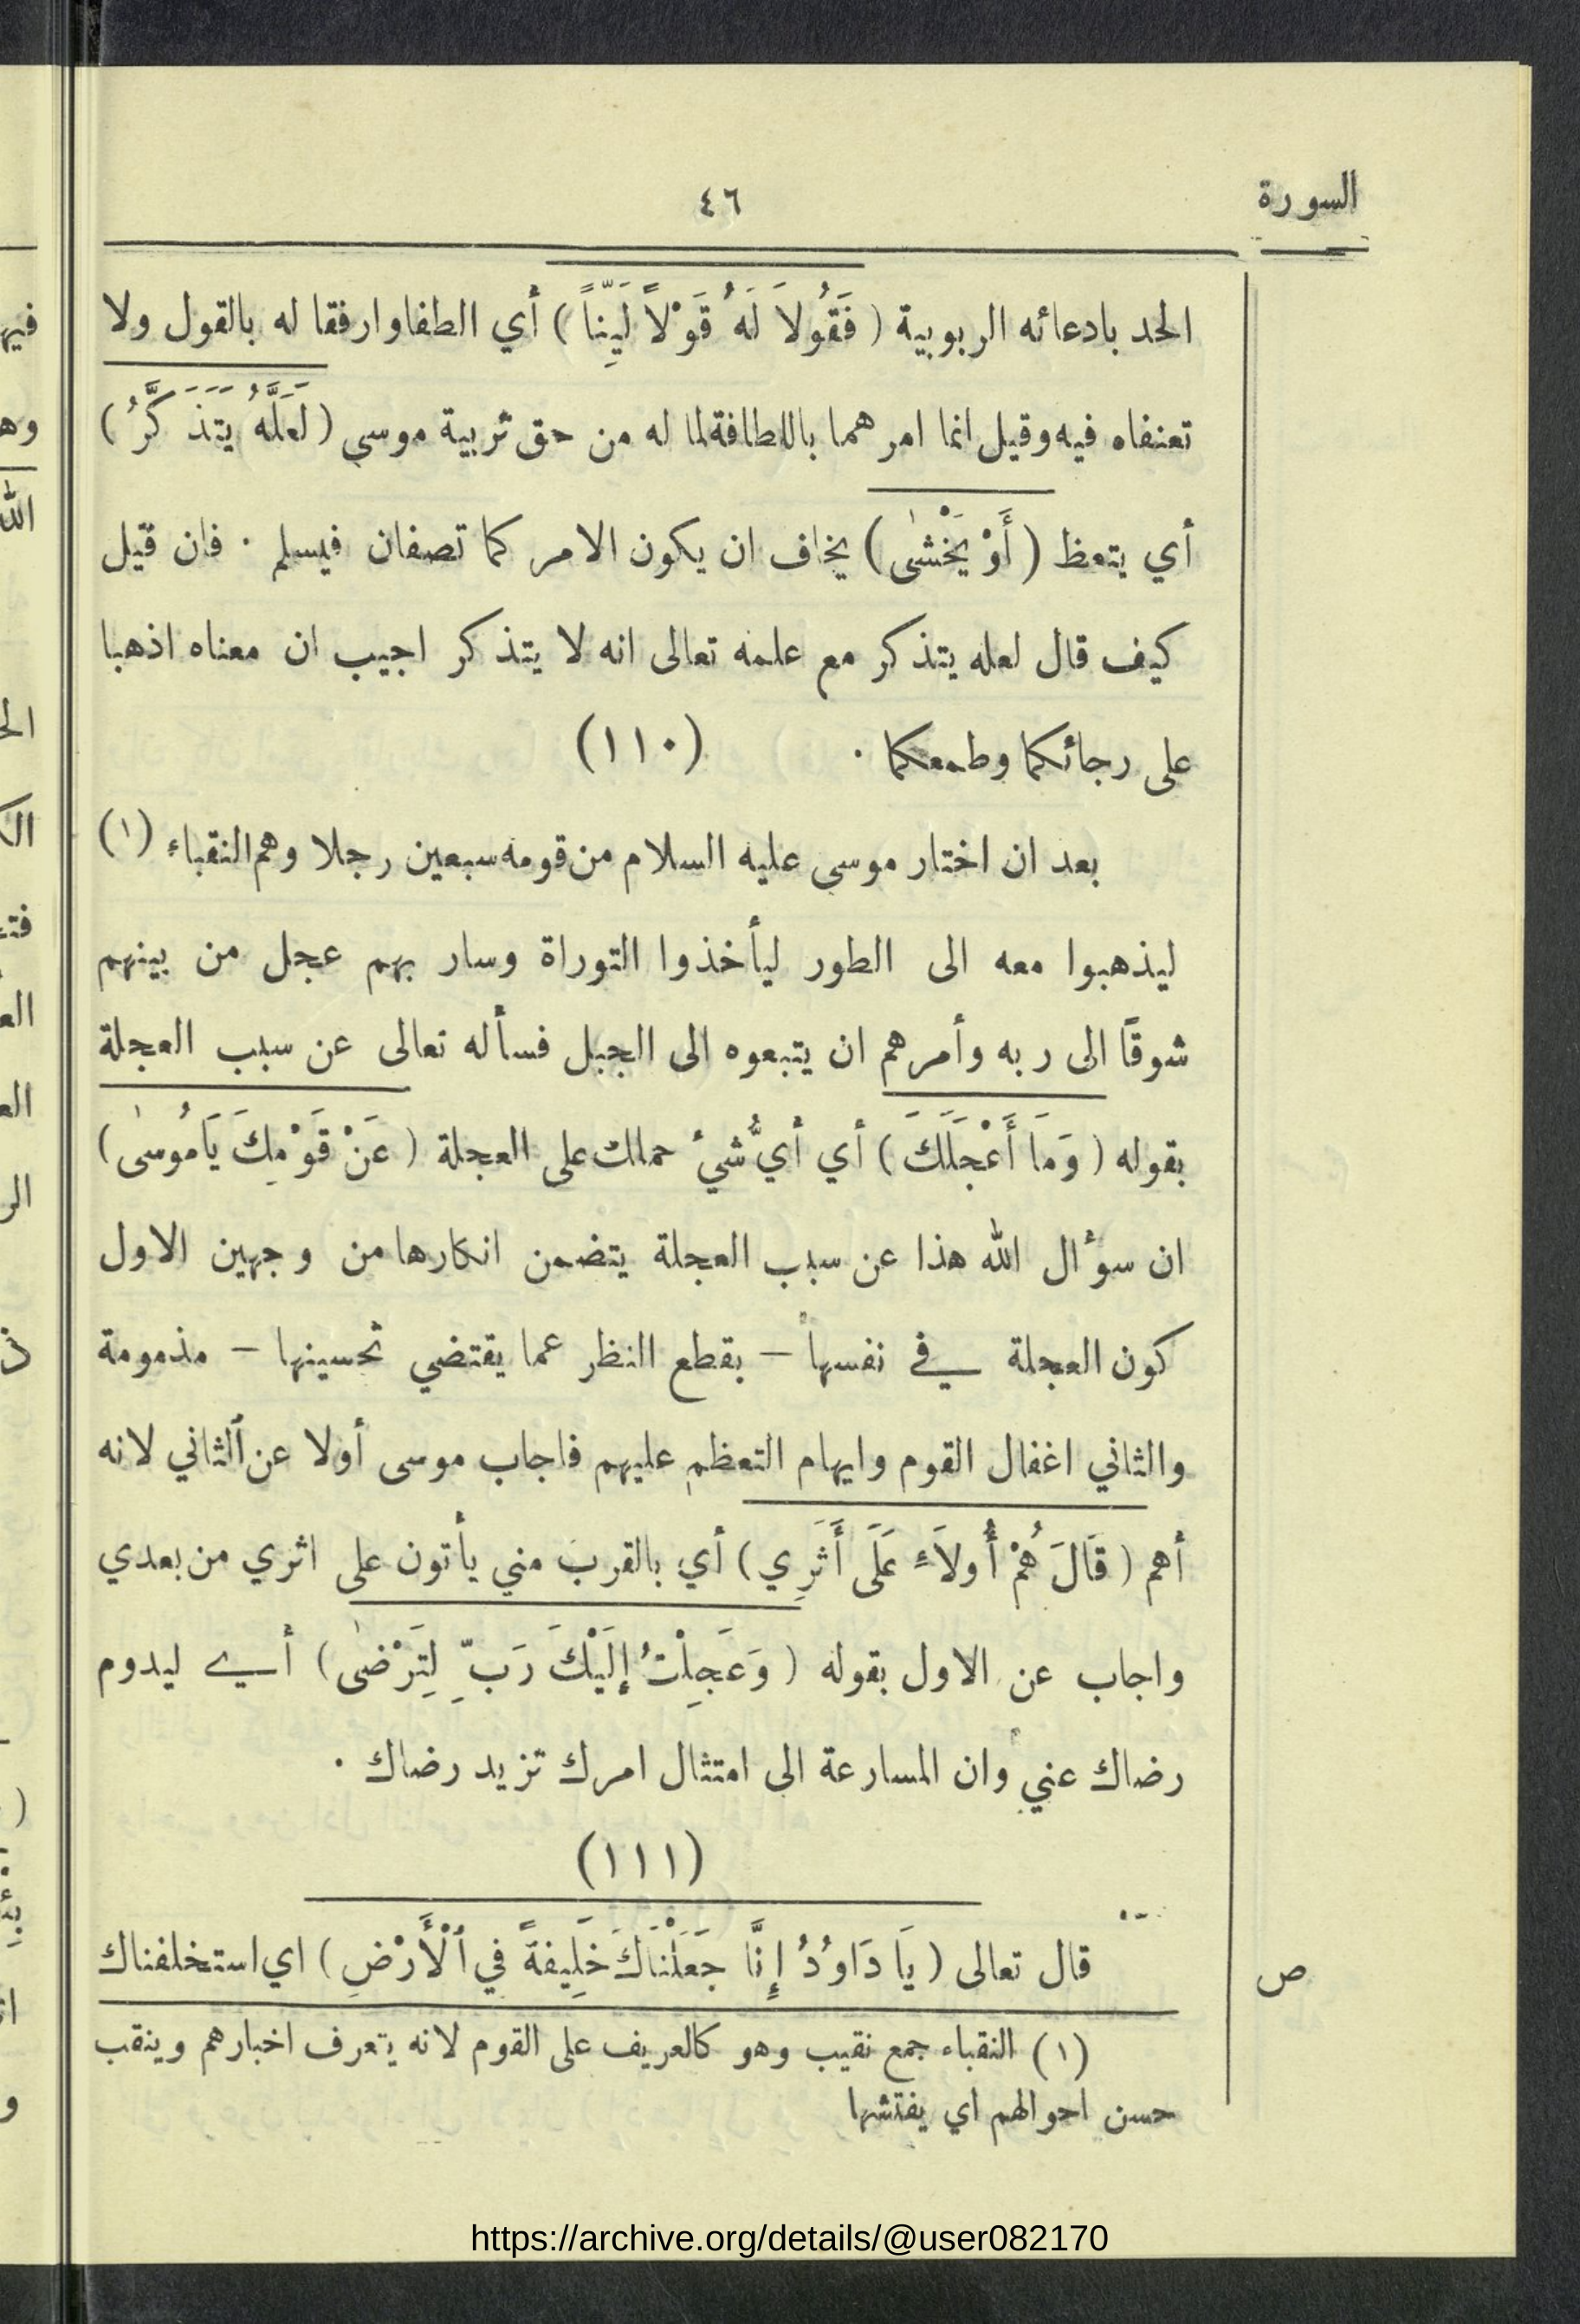 السورة
٤٦
الحد بادعائه الربوبية ( فَقُولاَ لَهُ قَوْلاً لَيِّناً ) أي الطفا وارفقا له بالقول ولا
تعنفاه فيه وقيل انما امرهما باللطافة لما له من حق تربية موسى ( لَعَلَّهُ يَتَذَكَّرُ )
أي يتعظ ( أَوْ يَخْشَى ) يخاف ان يكون الامر كما تصفان فيسلم . فان قيل
كيف قال لعله يتذكر مع علمه تعالى انه لا يتذكر اجيب ان معناه اذهبا
على رجائكما وطمعكما .
(١١٠)
بعد ان اختار موسى عليه السلام من قومه سبعين رجلا وهم النقباء (١)
ليذهبوا معه الى الطور ليأخذوا التوراة وسار بهم عجل من بينهم
شوقًا الى ربه وأمرهم ان يتبعوه الى الجبل فسأله تعالى عن سبب العجلة
بقوله ( وَمَا أَعْجَلَكَ ) أي أيُّ شيءٍ حملك على العجلة ( عَنْ قَوْمِكَ يَامُوسَى )
ان سؤال الله هذا عن سبب العجلة يتضمن انكارها من وجهين الاول
كون العجلة في نفسها – بقطع النظر عما يقتضي تحسينها – مذمومة
والثاني اغفال القوم وايهام التعظم عليهم فاجاب موسى أولا عن الثاني لانه
أهم ( قَالَ هُمْ أُولاَءِ عَلَى أَثَرِي ) أي بالقرب مني يأتون على اثري من بعدي
واجاب عن الاول بقوله ( وَعَجِلْتُ إِلَيْكَ رَبِّ لِتَرْضَى ) أي ليدوم
رضاك عني وان المسارعة الى امتثال امرك تزيد رضاك .
(١١١)
قال تعالى ( يَا دَاوُدُ إِنَّا جَعَلْنَاكَ خَلِيفَةً فِي ٱلْأَرْضِ ) اي استخلفناك
ص
(١) النقباء جمع نقيب وهو كالعريف على القوم لانه يتعرف اخبارهم وينقب
حسن احوالهم اي يفتشها
https://archive.org/details/@user082170